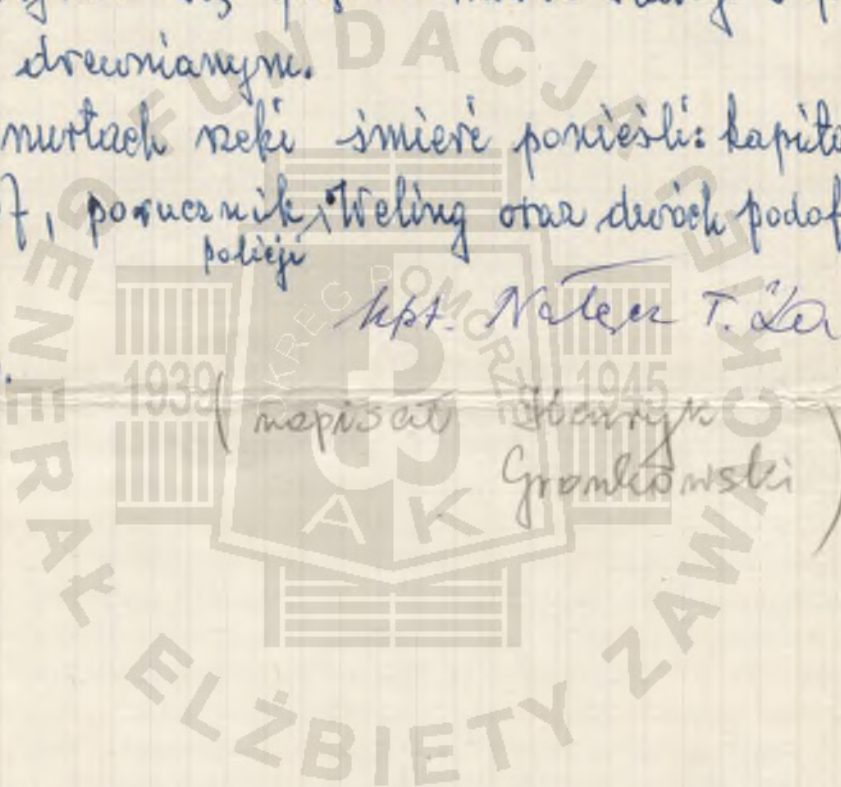 drewnianym.
nurtach rzeki śmierć ponieśli: kapita
porucznik policji Weling oraz dwóch podof
kpt. Nałęcz T. Ża
(napisał Henryk
Gronkowski)
FUNDACJA
GENERAŁ ELŻBIETY ZAWACKIEJ
OKRĘG POMORZE
1939 1945
AK